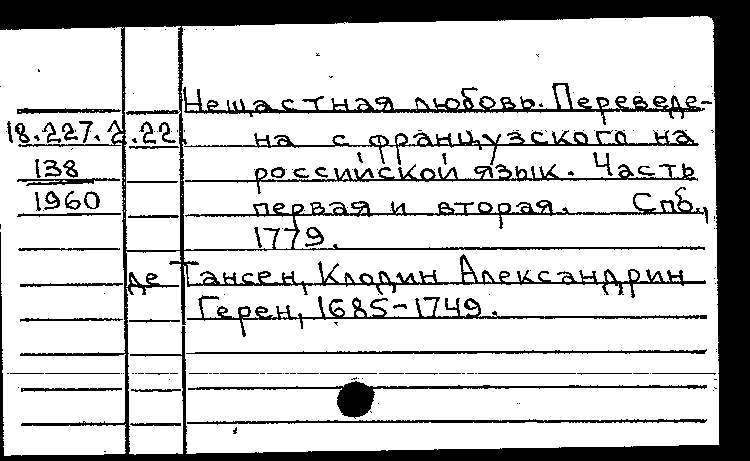 Нещастная любовь. Переведе-
18.227.2.22. на с французского на
138 российской язык. Часть
1960 первая и вторая. Спб.,
1779.
де Тансен, Клодин Александрин
Герен, 1685-1749.